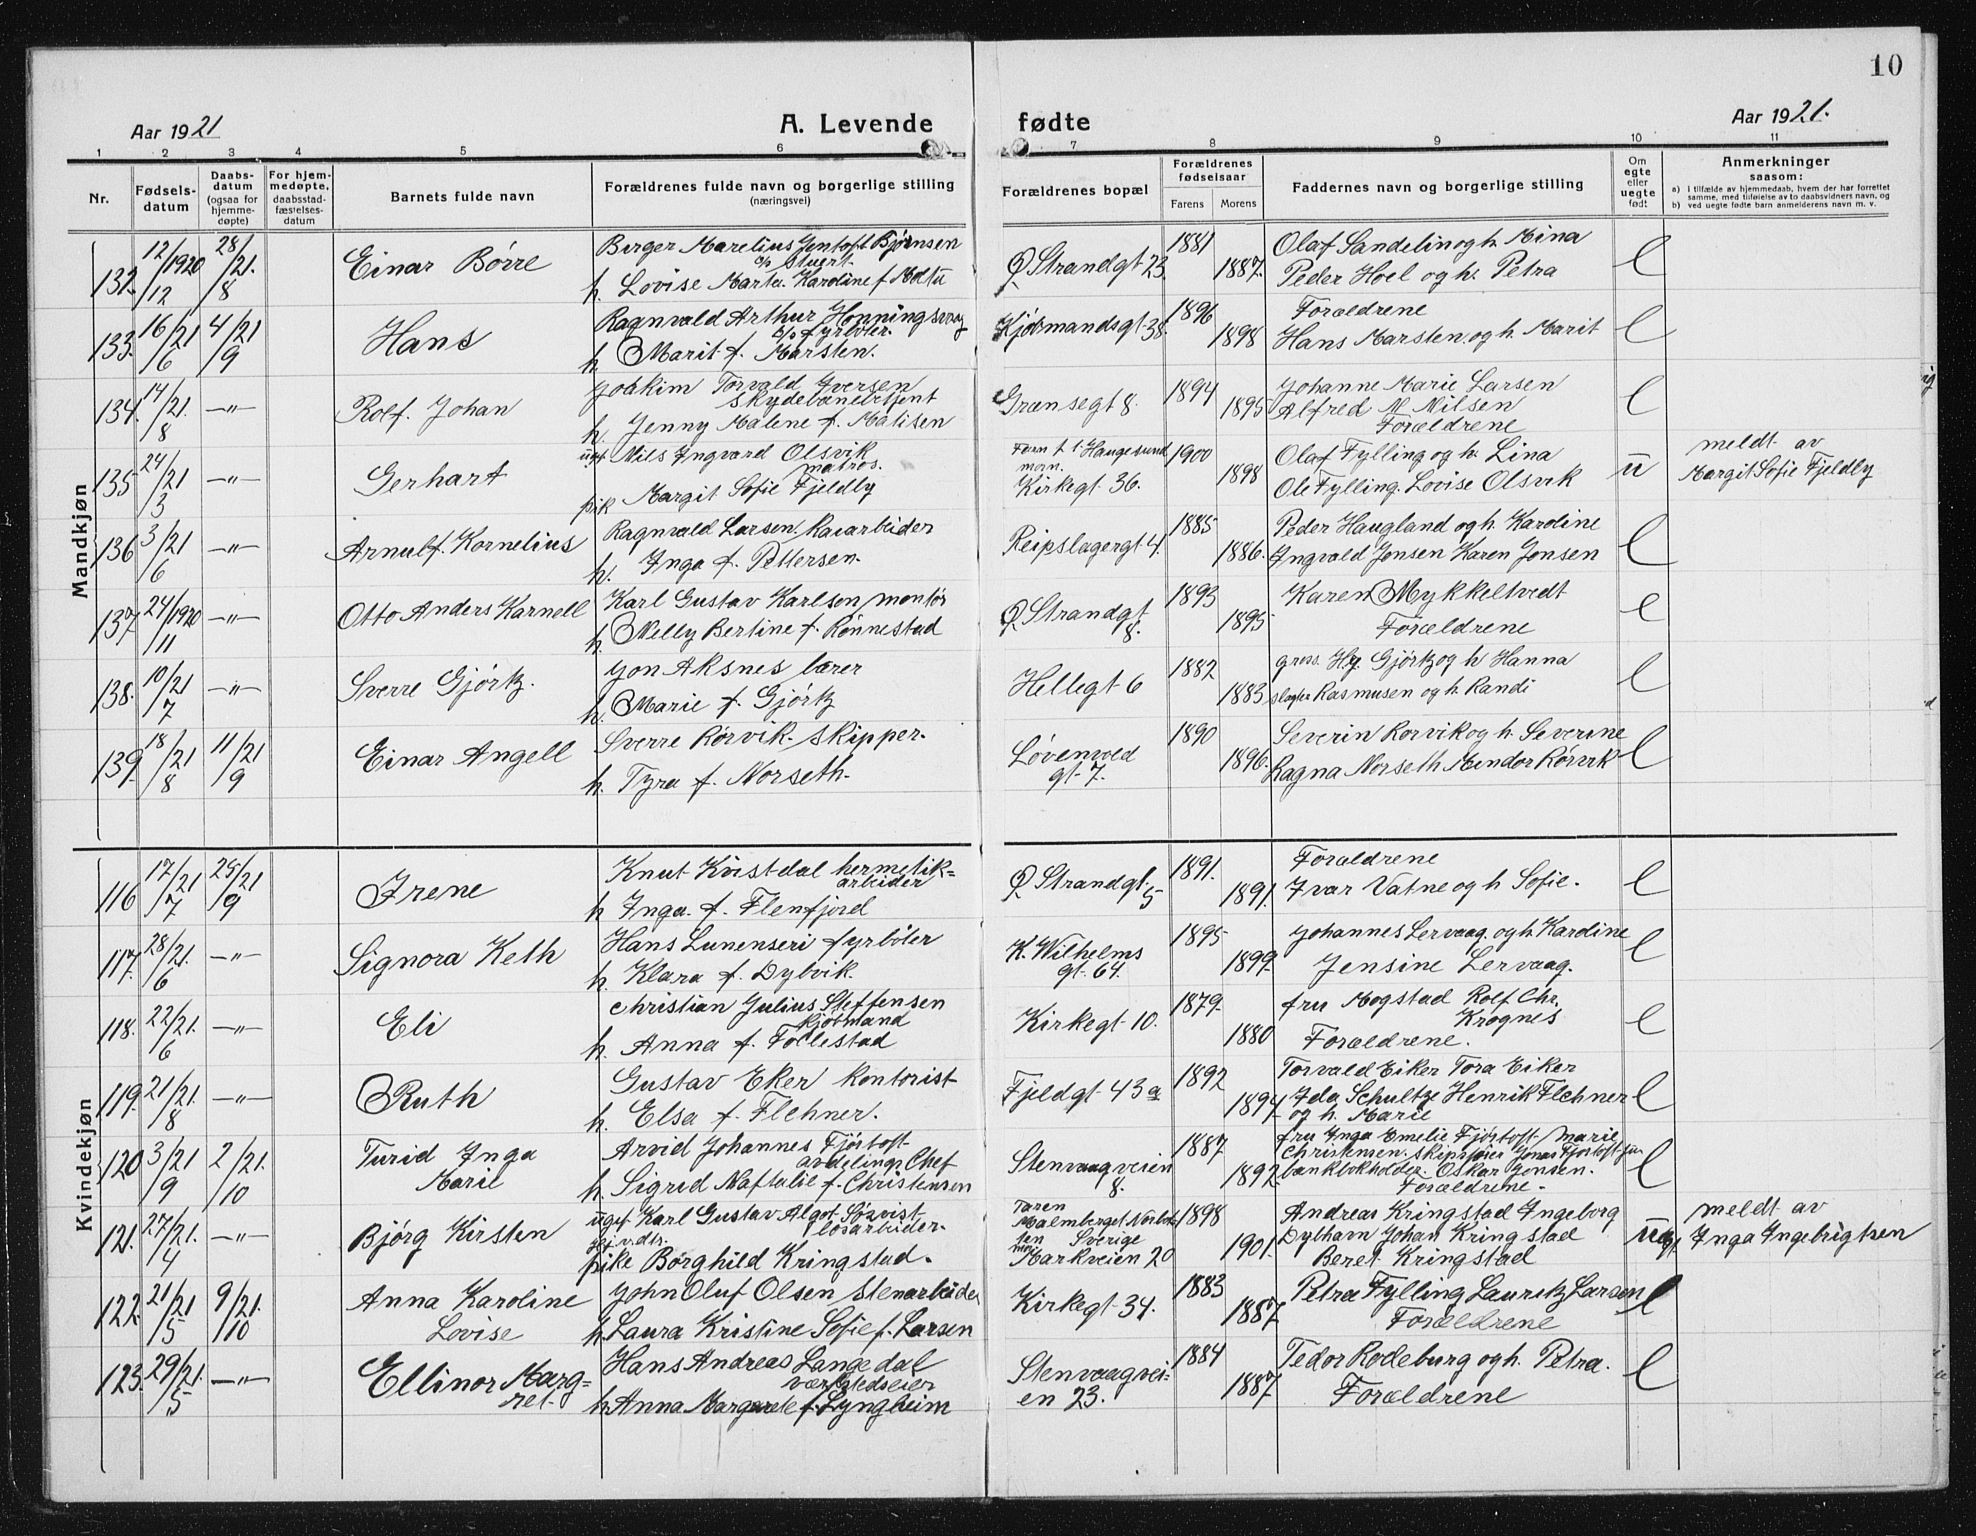 10
Aar 1921
A. Levende fødte
Aar 1921.
1 2 3 4 5 6 7 8 9 10 11
Nr.
Fødsels-
datum
Daabs-
datum
(ogsaa for
hjemme-
døpte)
For hjem-
medøpte,
daabsstad-
fæstelses-
datum
Barnets fulde navn
Forældrenes fulde navn og borgerlige stilling
(næringsvei)
Forældrenes bopæl
Forældrenes
fødselsaar
Farens Morens
Faddernes navn og borgerlige stilling
Om
egte
eller
uegte
født
Anmerkninger
saasom:
a) i tilfælde av hjemmedaab, hvem der har forrettet
samme, med tilføielse av to daabsvidners navn, og
b) ved uegte fødte barn anmelderens navn m. v.
Mandkjøn
132. 12/12 1920 28/8 21. Einar Børre
Birger Marelius Jentoft Bjørnsen
stuert.
h. Lovise Marta Karoline f.
Ø. Strandgt 23. 1881 1887.
Olaf Sandelin og h. Mina
Peder Hoel og h. Petra
e
133. 16/6 21 4/9 21 Hans
Ragnvald Arthur Honningsvaag
fyrbøter.
h Marit f. Marsten.
Kjøbmandsgt 38. 1896 1898
Forældrene
Hans Marsten og h. Marit
e
134. 14/8 21. —"— Rolf Johan
Joakim Torvald Iversen
h. Jenny Malene f. Malisen
Grænsegt 8. 1894 1895
Johanne Marie Larsen
Alfred M. Nilsen
Forældrene
e
135 24/3 21 —"— Gerhart
ugf. Nils Ingvard Olsvik
matros.
pik Margit Sofie Fjeldly
Haugesund
morn.
Kirkegt 36. 1900 1898
Olaf Fylling og h. Lina
Ole Fylling. Lovise Olsvik
u
meldt av
Margit Sofie Fjeldly
136 3/6 21 —"— Arnulf Kornelius
Ragnvald Larsen. Kaiarbeider
h. Inga f. Pettersen.
Reipslagergt 4. 1885 1886.
Peder Haugland og h. Karoline
Ingvald Jensen Karen Jensen
e
137 24/11 1920 —"— Otto Anders Karnell
Karl Gustav Karlsen montør
h. Nelly Bertine f. Rønnestad
Ø. Strandgt
8. 1893 1895
Karen Mykkeltvedt
Forældrene
e
138. 10/7 21 —"— Sverre Gjörtz.
Jon Aksnes lærer
h. Marie f. Gjörtz
Hellegt 6 1882 1883
gross. Gjörtz og h Hanna
slagter Rasmusen og h Randi
e
139 18/8 21 11/9 21 Einar Angell
Sverre Rørvik. skipper.
h. Tyra f. Norseth.
Løvenvold
gt 7. 1890 1896.
Severin Rørvik og h Severine
Ragna Norseth Mendor Rørvik
e
Kvindekjøn
116 17/7 21 25/9 21 Irene
Knut Kvistdal hermetik=
arbeider
h Inga. f. Flemfjord
Ø. Strandgt.
5 1891. 1891.
Forældrene
Ivar Vatne og h Sofie.
e
117. 28/6 21. —"— Signora Keth
Hans Lunenseri fyrbøter
h. Klara f. Dybvik.
K. Wilhelms
gt. 64. 1895 1899.
Johannes Lervaag. og h Karoline
Jensine Lervaag.
e
118. 22/6 21. —"— Eli
Christian Julius Steffensen
kjøbmand
h. Anna f. Follestad
Kirkegt 10. 1879. 1880
fru Mogstad Rolf Chr.
Krognes
Forældrene.
e
119. 21/8 21. —"— Ruth
Gustav Eker kontorist
h. Elsa f. Flehner.
Fjeldgt 43 a 1892 1894.
Torvald Eiker Tora Eiker
Ida Schultze Henrik Flehner
og h. Marie
e
120 3/9 21 2/10 21. Turid Inga
Marie
Arvid Johannes Fjörtoft
avdelings Chef
h. Sigrid Naftalie f. Christensen
Stenvaagveien
8. 1887 1892.
fru Inga Emelie Fjörtoft. Marie
Christensen. skipsfører Jonas Fjörtoft
bankbokholder. Oskar Jensen.
Forældrene.
e
121. 27/4 21. —"— Bjørg Kirsten
ugf. Karl Gustav Algot Sözvist
løsarbeider.
pike Borghild Kringstad.
Faren
Malmberget Norbot
ten Sverige
mor
Parkveien 20 1898 1901.
Andreas Kringstad Ingeborg
Dylhavn Johan Kringstad
Beret Kringstad
uegt.
meldt av
Inga Ingebrigtsen
122. 21/5 21 9/10 21. Anna Karoline
Lovise
John Oluf Olsen stenarbeider
h. Laura Kristine Sofie f. Larsen
Kirkegt 34. 1883 1887.
Petra Fylling Lauritz Larsen
Forældrene
e
123. 29/5 21. —"— Ellinor Marg=
ret.
Hans Andreas Langedal
værkstedseier
h. Anna Margrete f. Lyngheim
Stenvaagvei=
en 23. 1884 1887.
Tedor Rodeburg og h. Petra.
Forældrene
e